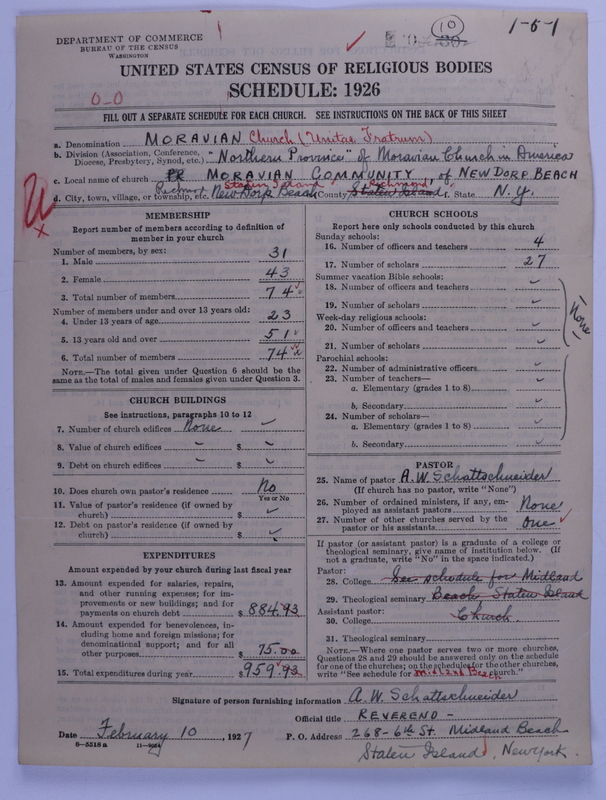 10
1-5-1
DEPARTMENT OF COMMERCE
BUREAU OF THE CENSUS
WASHINGTON
UNITED STATES CENSUS OF RELIGIOUS BODIES
SCHEDULE: 1926
0-0
FILL OUT A SEPARATE SCHEDULE FOR EACH CHURCH. SEE INSTRUCTIONS ON THE BACK OF THIS SHEET
a. Denomination MORAVIAN Church (Unitas Fratrum)
b. Division (Association, Conference, Diocese, Presbytery, Synod, etc.) "Northern Province" of Moravian Church in America
c. Local name of church MORAVIAN COMMUNITY, of NEW DORP BEACH
d. City, town, village, or township, etc. New Dorp Beach Staten Island County Staten Island Richmond f. State N.Y.
MEMBERSHIP
Report number of members according to definition of member in your church
Number of members, by sex:
1. Male 31
2. Female 43
3. Total number of members 74
Number of members under and over 13 years old:
4. Under 13 years of age 23
5. 13 years old and over 51
6. Total number of members 74
NOTE.—The total given under Question 6 should be the same as the total of males and females given under Question 3.
CHURCH BUILDINGS
See instructions, paragraphs 10 to 12
7. Number of church edifices None
8. Value of church edifices $
9. Debt on church edifices $
10. Does church own pastor's residence No
Yes or No
11. Value of pastor's residence (if owned by church) $
12. Debt on pastor's residence (if owned by church) $
EXPENDITURES
Amount expended by your church during last fiscal year
13. Amount expended for salaries, repairs, and other running expenses; for improvements or new buildings; and for payments on church debt $ 884.93
14. Amount expended for benevolences, including home and foreign missions; for denominational support; and for all other purposes 75.00
15. Total expenditures during year $ 959.93
CHURCH SCHOOLS
Report here only schools conducted by this church
Sunday schools:
16. Number of officers and teachers 4
17. Number of scholars 27
Summer vacation Bible schools:
18. Number of officers and teachers
19. Number of scholars
Week-day religious schools:
20. Number of officers and teachers
21. Number of scholars
None
Parochial schools:
22. Number of administrative officers
23. Number of teachers—
a. Elementary (grades 1 to 8)
b. Secondary
24. Number of scholars—
a. Elementary (grades 1 to 8)
b. Secondary
PASTOR
25. Name of pastor A.W. Schattschneider
(If church has no pastor, write "None")
26. Number of ordained ministers, if any, employed as assistant pastors None
27. Number of other churches served by the pastor or his assistants one
If pastor (or assistant pastor) is a graduate of a college or theological seminary, give name of institution below. (If not a graduate, write "No" in the space indicated.)
Pastor:
28. College See schedule for Midland
29. Theological seminary Beach Staten Island
Assistant pastor:
30. College Church
31. Theological seminary
NOTE.—Where one pastor serves two or more churches, Questions 28 and 29 should be answered only on the schedule for one of the churches; on the schedules for the other churches, write "See schedule for Midland Beach church."
Signature of person furnishing information A.W. Schattschneider
Official title REVEREND -
Date February 10, 1927
P. O. Address 268-6th St. Midland Beach
8-5518 a
Staten Island, New York.